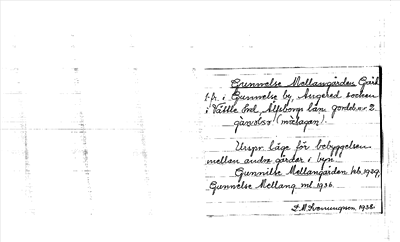 Gunnelse Mellangården Gård
f.f. i Gunnelse by, Angered socken
i Vättle hd, Älfsborgs län. jordeb. nr 2
(mätagan).
Urspr. läge för bebyggelsen
mellan andra gårdar i byn.
Gunnilse Mellangården hb. 1929,
Gunnelse Mellang ml. 1936.
1938